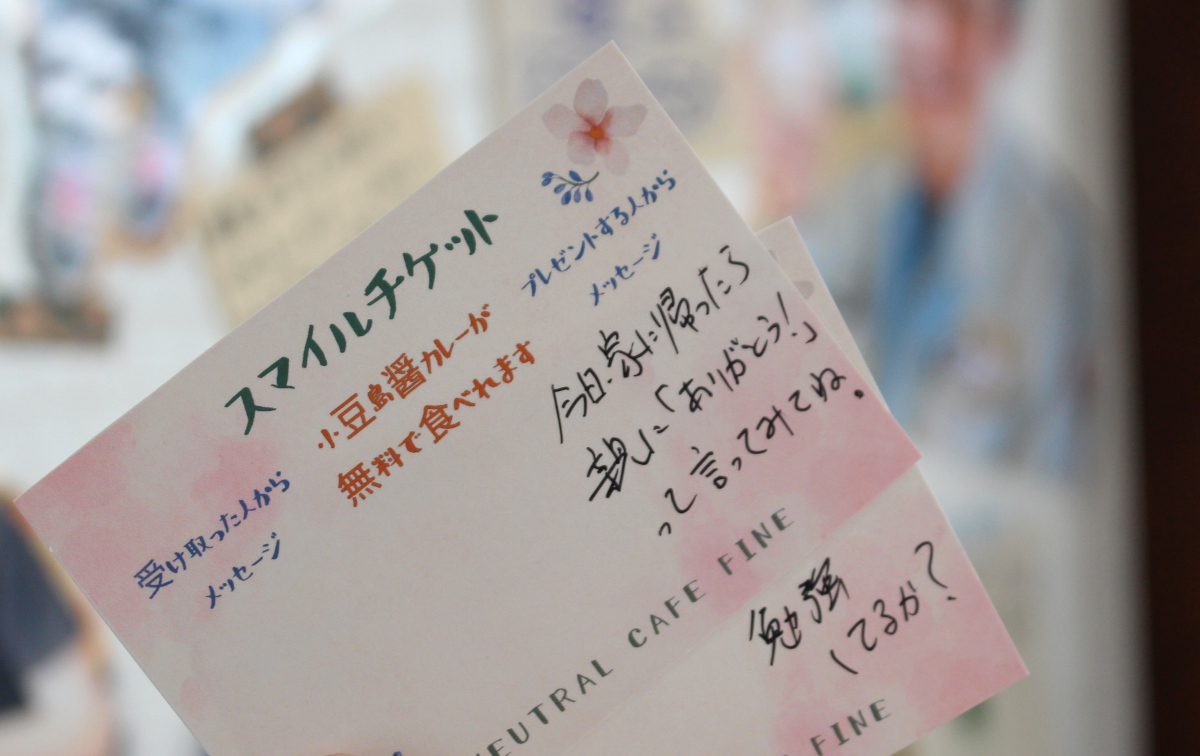 スマイルチケット
小豆島醤カレーが
無料で食べれます
プレゼントする人から
メッセージ
今日、家に帰ったら
親に「ありがとう!」
って言ってみてね。
受け取った人から
メッセージ
NEUTRAL CAFE FINE
勉強
してるか?
FINE